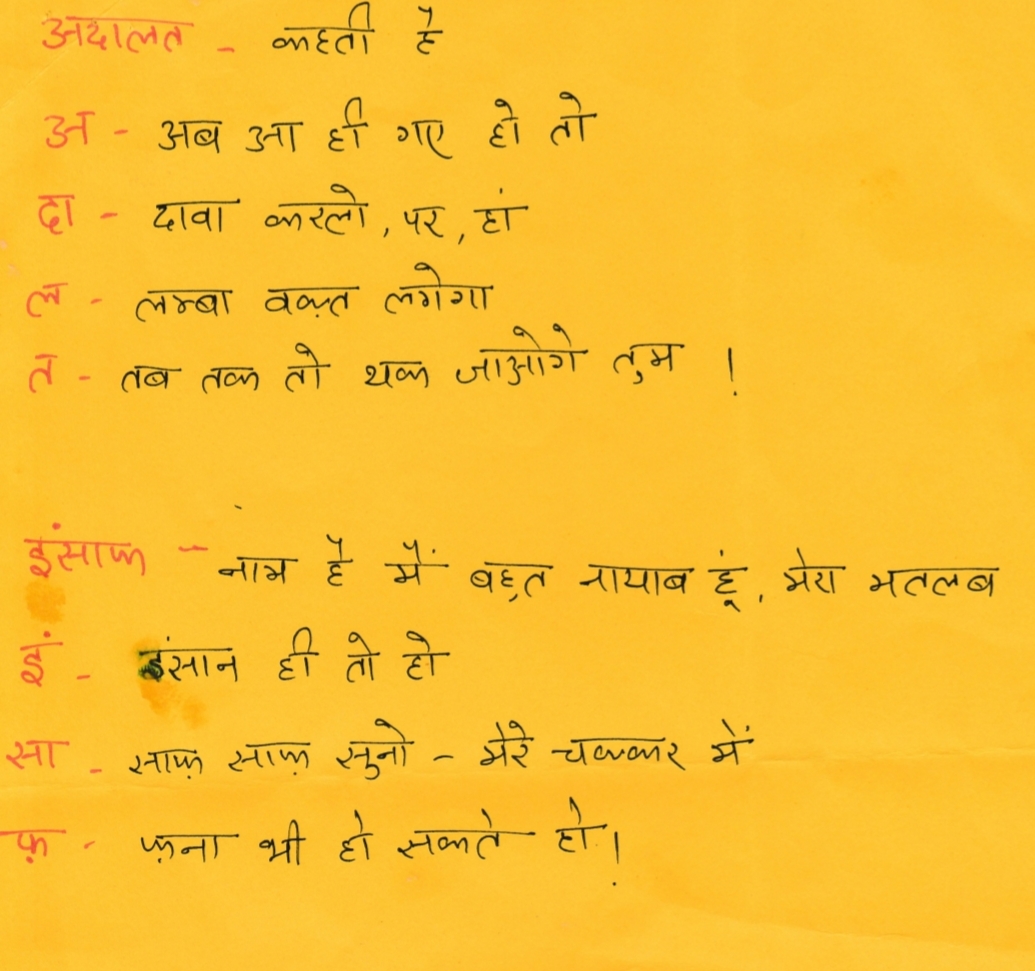 अदालत - कहती है
अ - अब आ ही गए हो तो
दा - दावा करलो, पर, हां
ल - लम्बा वक़्त लगेगा
त - तब तक तो थक जाओगे तुम !
इंसाफ - नाम है मैं बहुत नायाब हूं, मेरा मतलब
इं - इंसान ही तो हो
सा - साफ़ साफ़ सुनो - मेरे चक्कर में
फ़ - फ़ना भी हो सकते हो।